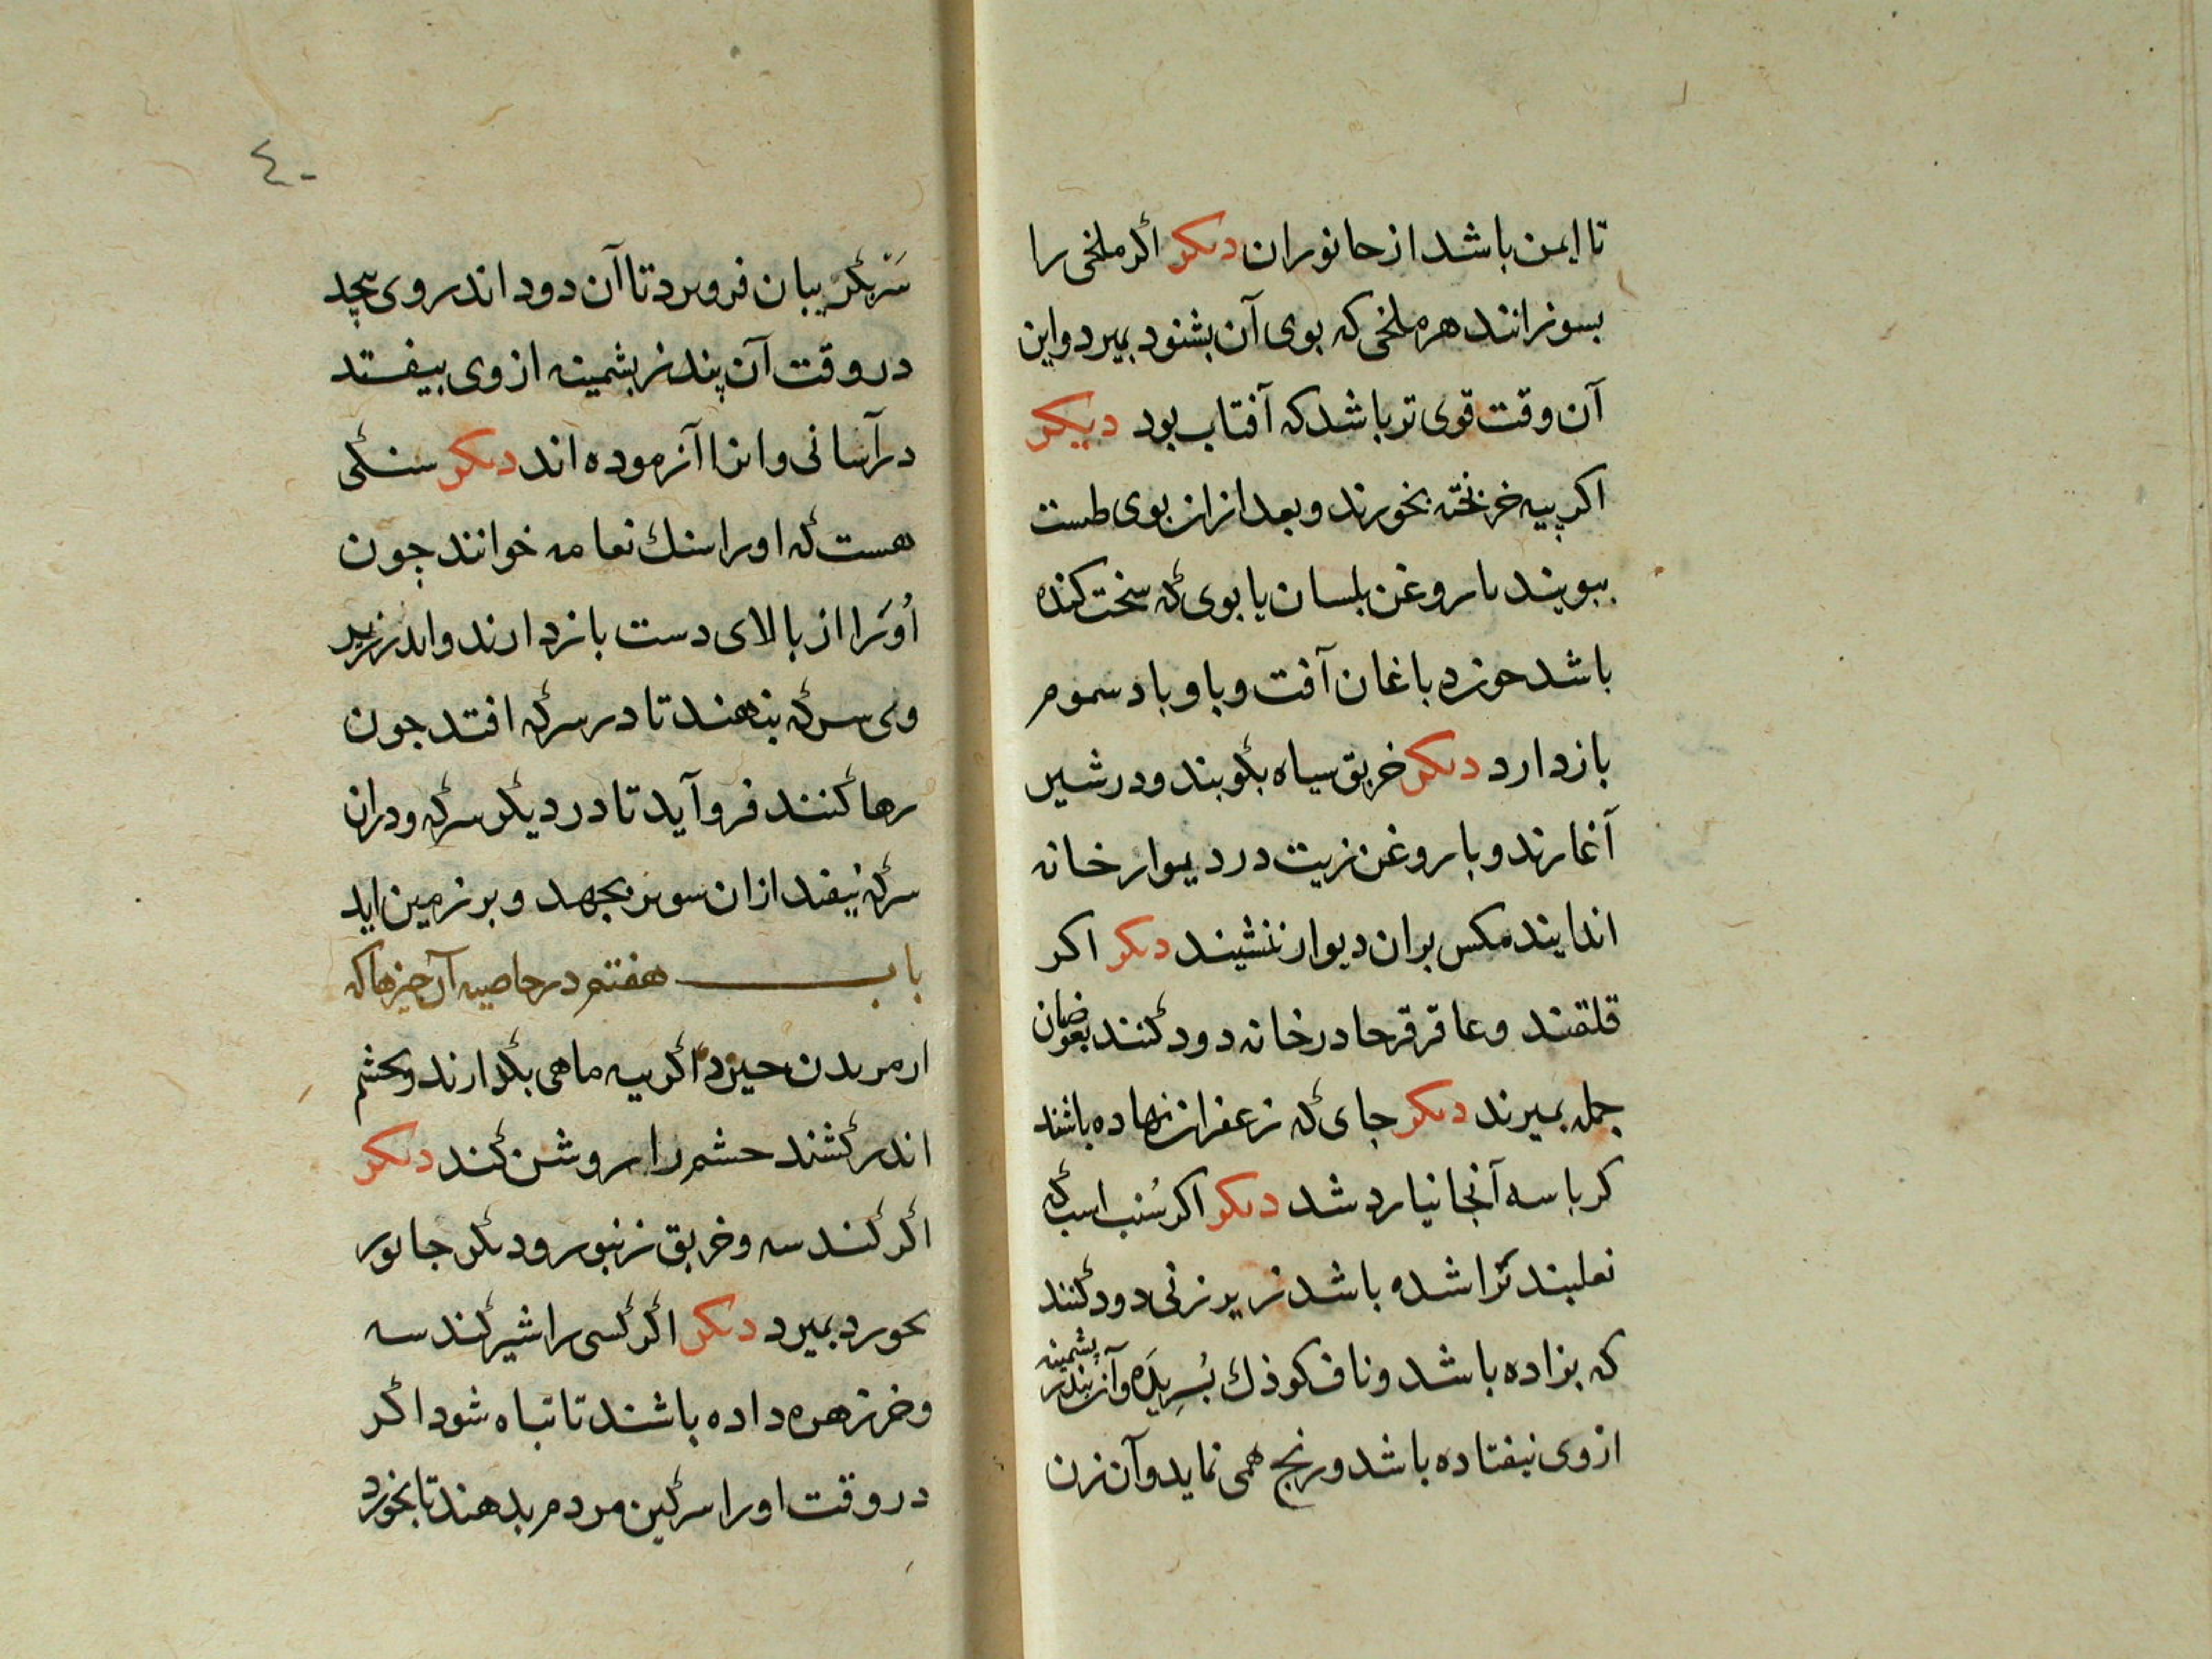 تا ایمن باشد از حانوران دیکر اگر ملخی را
بسوزانند هر ملخی که بوی آن بشنود بمیرد واین
آن وقت قوی تر باشد که آفتاب بود دیکر
اکر پیه خر بخورند و بعد ازان بوی طست
ببویند با روغن بلسان یا بوی که سخت کنده
باشد آفت وبا و باد سموم
باز دارد دیکر خربق سیاه بکوبند ودر شیر
آغارند و با روغن زیت در دیوار خانه
اندایند مکس بران دیوار ننشیند دیکر اکر
قلقند وعاقرقرحا در خانه دود کنند بعوضان
جمله بمیرند دیکر جای که زعفران نهاده باشند
کرباسه آنجا نیارد شد دیکر اکر سُنب اسب که
نعلبند تراشده باشد زیر زنی دود کنند
که بزاده باشد و ناف کوذك بُبریده وآن پشمینه
از وی نیفتاده باشد و رنج همی نماید وآن زن
٤٠
سَر بکریبان فرو برد تا آن دود اندر وی پیچد
در وقت آن پشمینه از وی بیفتد
در آسانی و انرا آزموده اند دیکر سنگی
هست که اورا سنك نعامه خوانند چون
اُورا از بالای دست باز دارند واندر زیر
وی سرکه بنهند تا در سرکه افتد چون
رها کنند فرو آید تا در دیگر سرکه ودران
سرکه نیفتد ازان سوبر بجهد و بر زمین اید
باب هفتم در خاصیه آن چیزها که
از مر بدن خیزد اگر پیه ماهی بگدارند وبچشم
اندر کشند چشم را روشن کند دیکر
اگر کندسه وخربق زنبور ودیگر جانور
بخورد بمیرد دیکر اگر کسی را شیر کندسه
وخرزهره داده باشند تا تباه شود اگر
در وقت اورا سرگین مردم بدهند تا بخورد